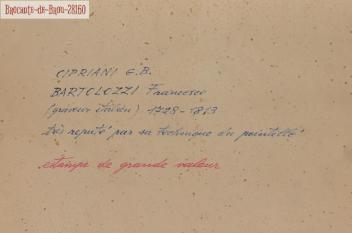 Brocante-de-Brou-28160
CIPRIANI G.B.
BARTOLOZZI Francesco
(graveur italien) 1728 - 1813
très réputé par sa technique du pointillé
estampe de grande valeur